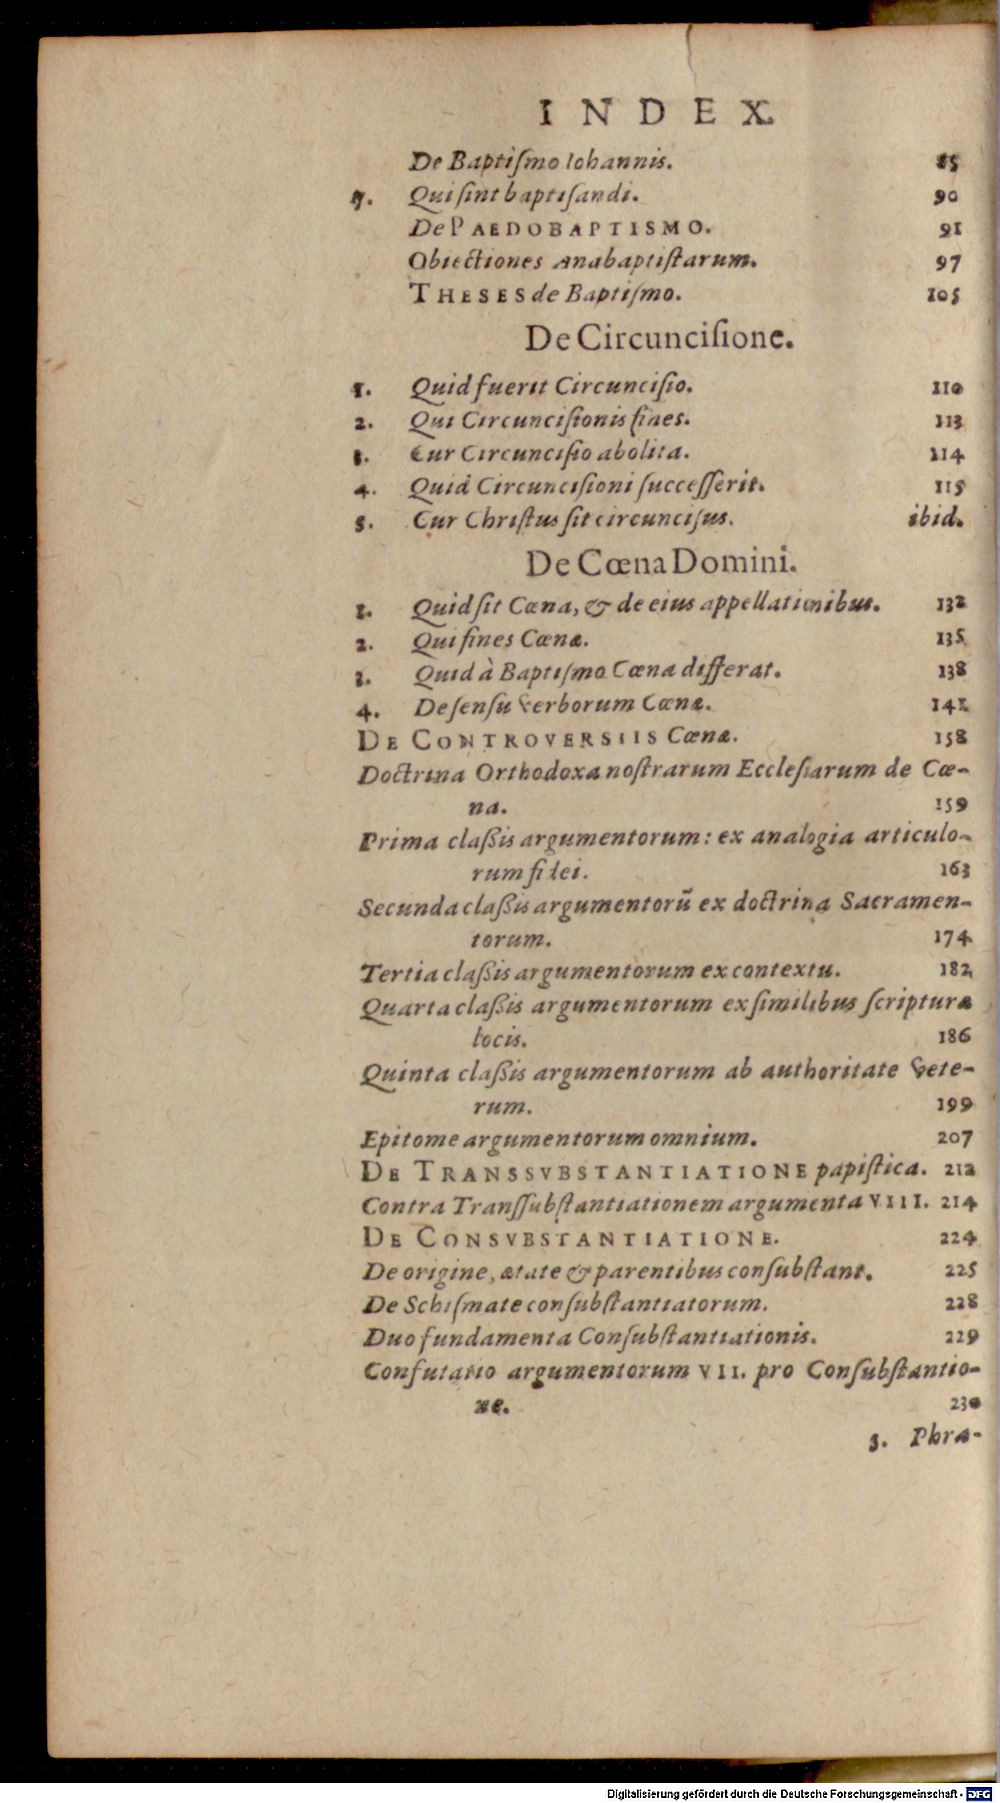 INDEX.
De Baptiſmo Iohannis. 85
7. Qui ſint baptiſandi. 90
De PAEDOBAPTISMO. 91
Obiectiones Anabaptiſtarum. 97
THESES de Baptiſmo. 105
De Circunciſione.
1. Quid fuerit Circunciſio. 110
2. Qui Circunciſionis fines. 113
3. Cur Circunciſio abolita. 114
4. Quid Circunciſioni ſucceſſerit. 115
5. Cur Chriſtus ſit circunciſus. ibid.
De Cœna Domini.
1. Quid ſit Cœna, & de eius appellationibus. 132
2. Qui fines Cœnæ. 135
3. Quid à Baptiſmo Cœna differat. 138
4. De ſenſu verborum Cœnæ. 141
DE CONTROVERSIIS Cœnæ. 158
Doctrina Orthodoxa noſtrarum Eccleſiarum de Cœ-
na. 159
Prima claßis argumentorum: ex analogia articulo-
rum fidei. 163
Secunda claßis argumentorū ex doctrina Sacramen-
torum. 174
Tertia claßis argumentorum ex contextu. 182
Quarta claßis argumentorum ex ſimilibus ſcripturæ
locis. 186
Quinta claßis argumentorum ab authoritate vete-
rum. 199
Epitome argumentorum omnium. 207
DE TRANSSVBSTANTIATIONE papiſtica. 212
Contra Tranſſubſtantiationem argumenta VIII. 214
DE CONSVBSTANTIATIONE. 224
De origine, ætate & parentibus conſubſtant. 225
De Schiſmate conſubſtantiatorum. 228
Duo fundamenta Conſubſtantiationis. 229
Confutatio argumentorum VII. pro Conſubſtantio-
ne. 230
3. Phra-
Digitalisierung gefördert durch die Deutsche Forschungsgemeinschaft - DFG